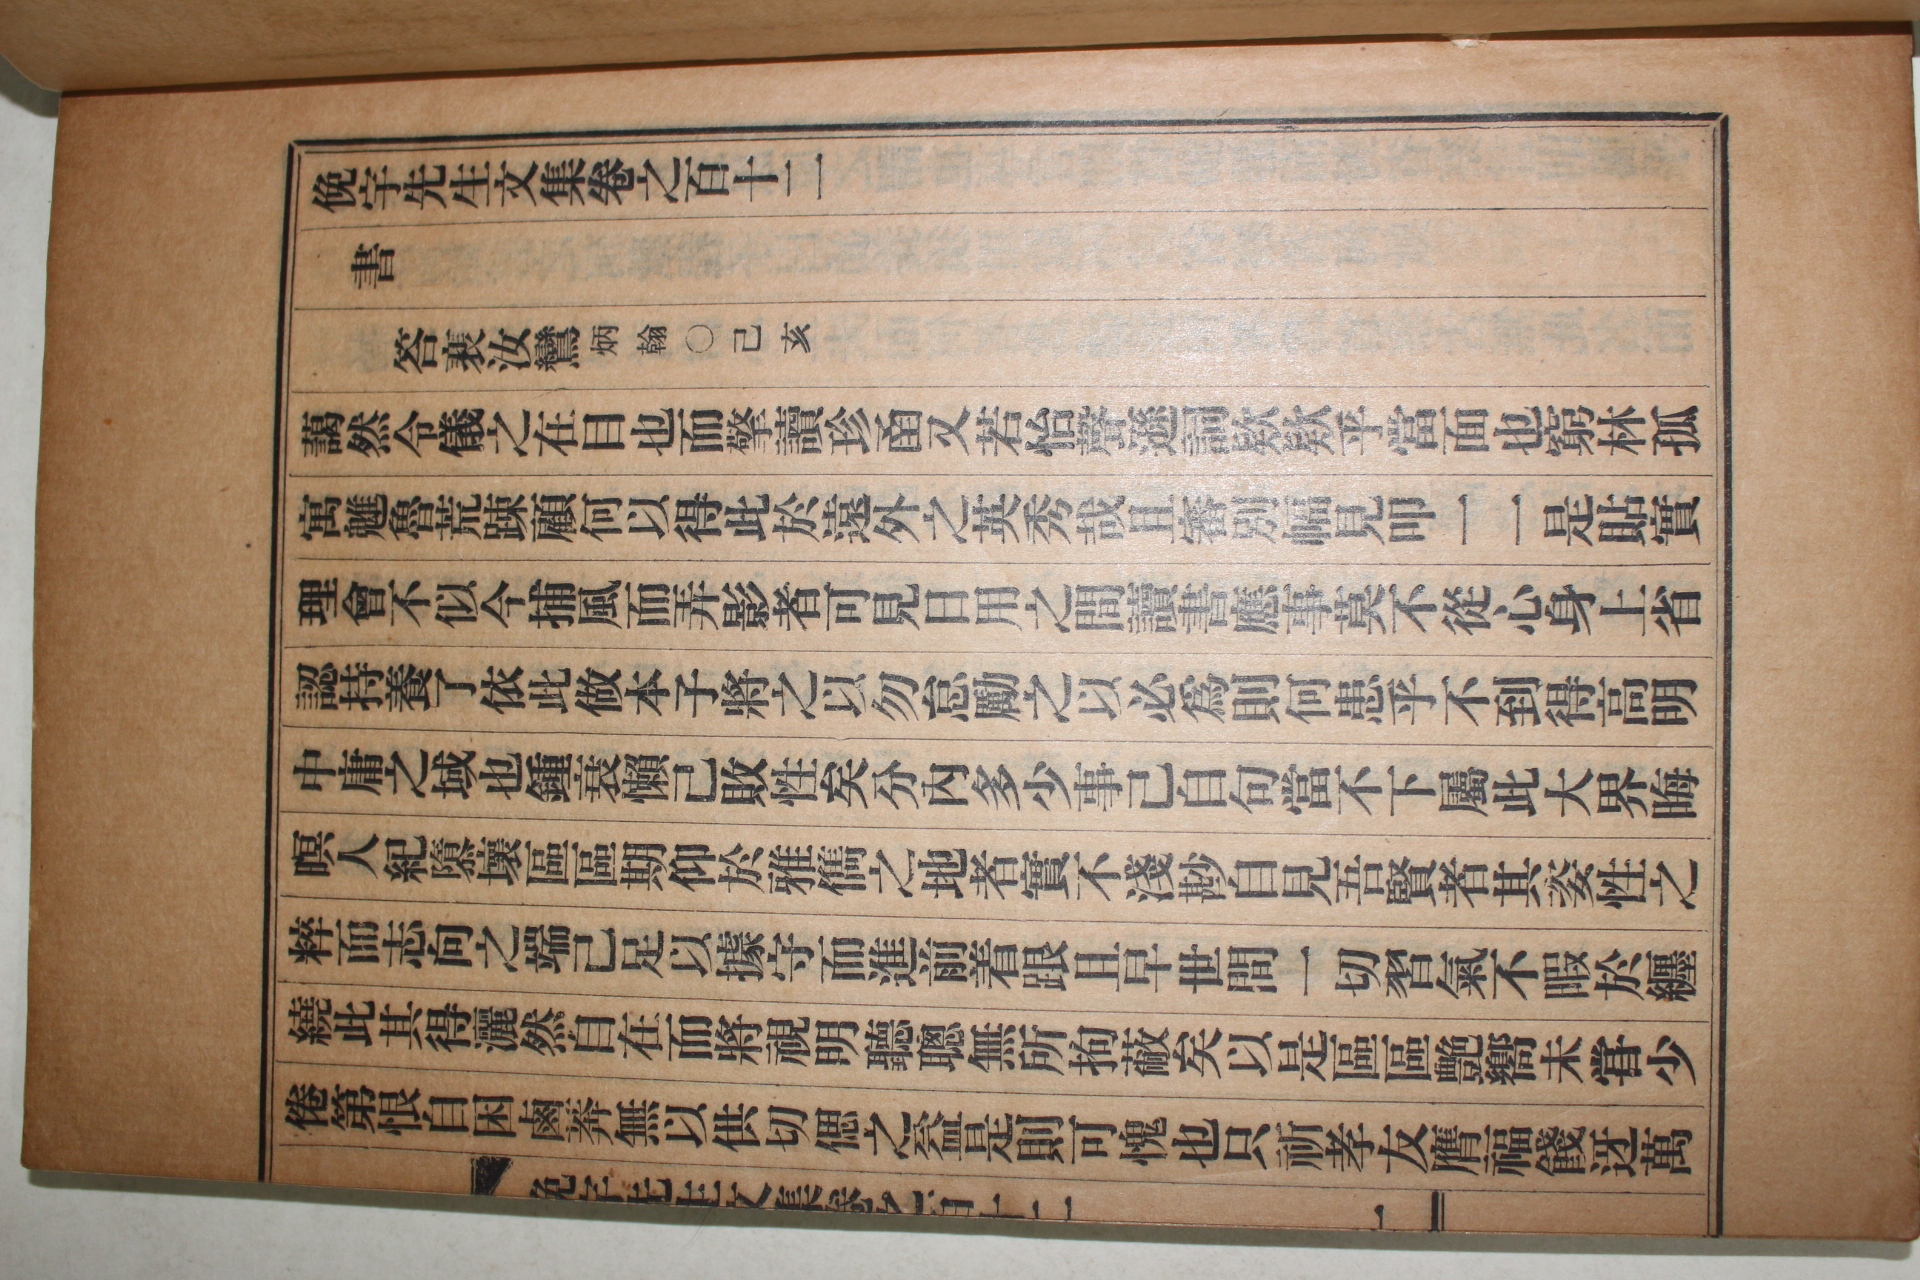 俛宇先生文集卷之百十二
書
答裵汝鸞炳翰○己亥
藹然令儀之在目也而擎讀珍函又若怡聲遜詞欵欵乎當面也窮林孤
寓魋魯荒踈顧何以得此於遠外之英秀哉且審別幅見叩一一是貼實
理會不似今捕風而弄影者可見日用之間讀書應事莫不從心身上省
認持養了依此做本子將之以勿怠勵之以必爲則何患乎不到得高明
中庸之域也鍾衰懶己敗性矣分內多少事己自句當不下屬此大界晦
暝人紀隳壞區區期仰於雅儁之地者實不淺尠自見吾賢者其姿性之
粹而志向之端己足以據守而進前着跟且早世間一切習氣不暇於纏
繞此其得灑然自在而將視明聽聰無所拘蔽矣以是區區艶嚮未甞少
倦第恨自困鹵莽無以供切偲之益是則可愧也只祈孝友膺福餞迓萬
俛宇先生文集卷之百十二
一